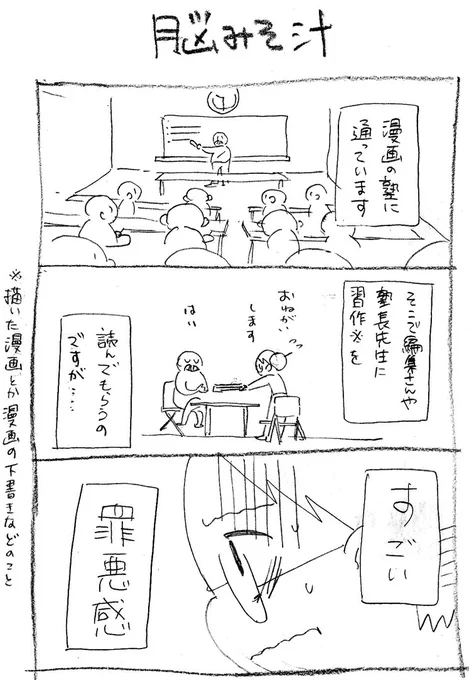 脳みそ汁
漫画の塾に
通っています
そこで編集さんや
塾長先生に
習作※を
おねがい
します
はい
読んでもらうの
ですが……
※描いた漫画とか漫画の下書きなどのこと
すごい
罪悪感